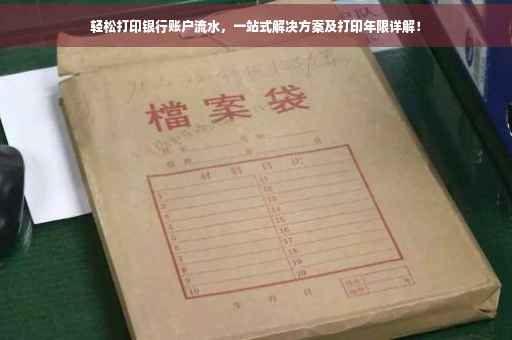 轻松打印银行账户流水，一站式解决方案及打印年限详解！
檔案袋
材料目次
1 11
2 12
3 13
4 14
5 15
6 16
7 17
8 18
9 19
10 20
年 月 日